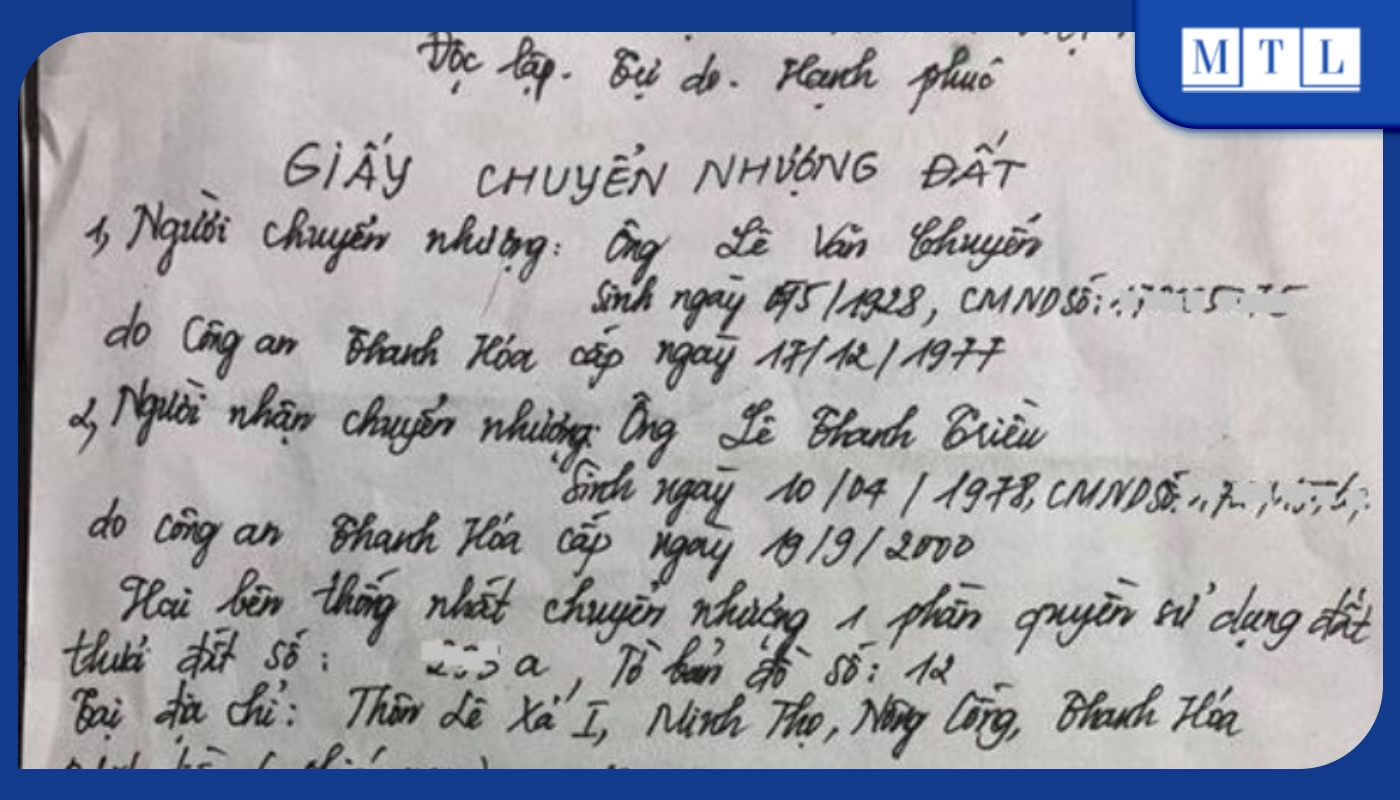 MTL
Độc lập. Tự do. Hạnh phúc
GIẤY CHUYỂN NHƯỢNG ĐẤT
1, Người chuyển nhượng: Ông Lê Văn Chuyến
Sinh ngày /1928, CMND số:
do Công an Thanh Hóa cấp ngày 17/12/1977
2, Người nhận chuyển nhượng: Ông Lê Thanh Triều
Sinh ngày 10/04/1978, CMND số:
do công an Thanh Hóa cấp ngày 19/9/2000
Hai bên thống nhất chuyển nhượng 1 phần quyền sử dụng đất
thửa đất số: a, Tờ bản đồ số: 12
Tại địa chỉ: Thôn Lê Xá I, Minh Thọ, Nông Cống, Thanh Hóa